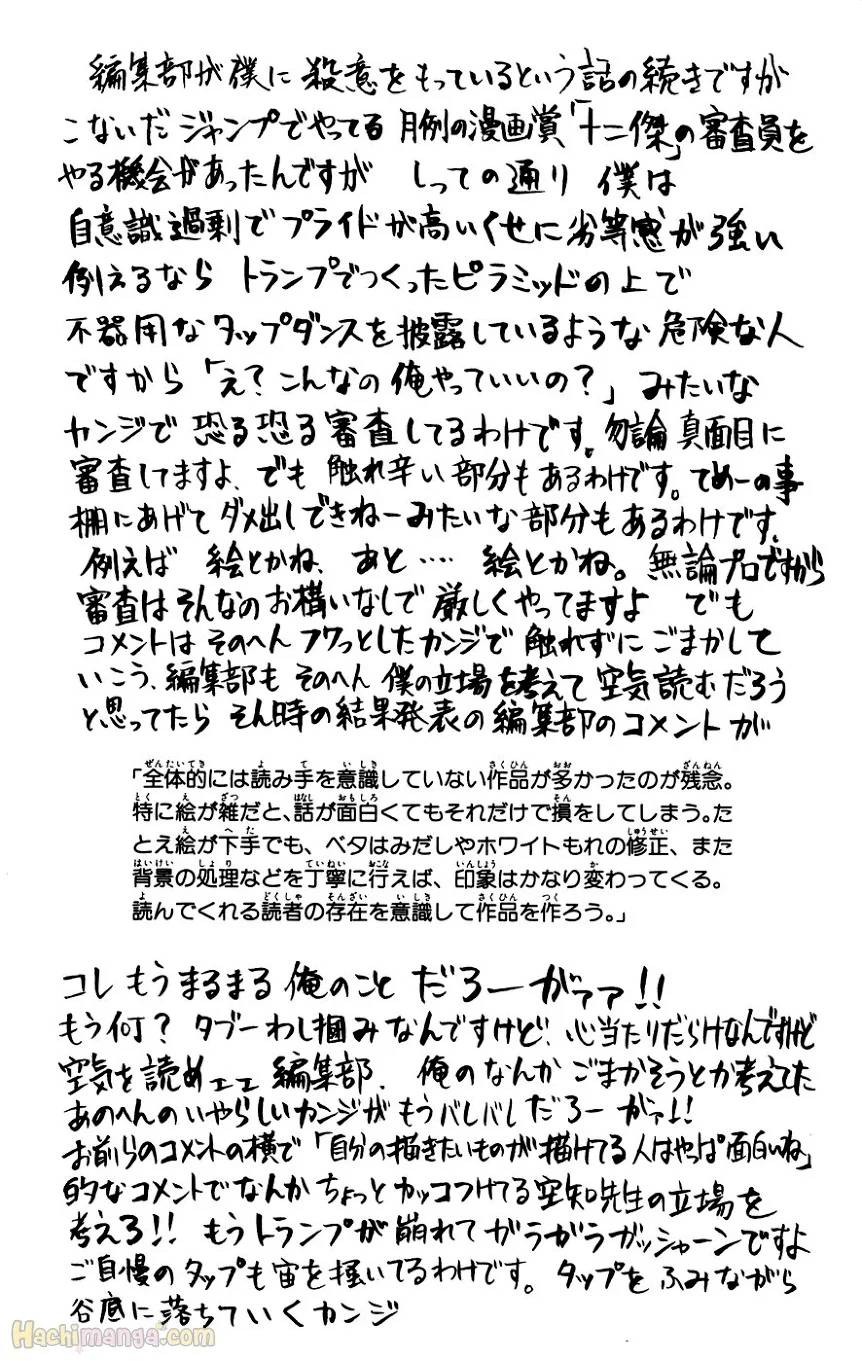 編集部が僕に殺意をもっているという話の続きですが
こないだジャンプでやってる月例の漫画賞「十二傑」の審査員を
やる機会があったんですが しっての通り 僕は
自意識過剰でプライドが高いくせに劣等感が強い
例えるなら トランプでつくったピラミッドの上で
不器用なタップダンスを披露しているような危険な人
ですから「え?こんなの俺やっていいの?」みたいな
カンジで恐る恐る審査してるわけです。勿論真面目に
審査してますよ、でも触れ辛い部分もあるわけです。てめーの事
棚にあげてダメ出しできねーみたいな部分もあるわけです。
例えば 絵とかね、あと‥‥ 絵とかね。無論プロですから
審査はそんなのお構いなしで厳しくやってますよ でも
コメントはそのへんフワっとしたカンジで触れずにごまかして
いこう、編集部もそのへん僕の立場を考えて空気読むだろう
と思ってたら そん時の結果発表の編集部のコメントが
「全体的には読み手を意識していない作品が多かったのが残念。
特に絵が雑だと、話が面白くてもそれだけで損をしてしまう。た
とえ絵が下手でも、ベタはみだしやホワイトもれの修正、また
背景の処理などを丁寧に行えば、印象はかなり変わってくる。
読んでくれる読者の存在を意識して作品を作ろう。」
コレもうまるまる俺のことだろーがァァ!!
もう何?タブーわし掴みなんですけど、心当たりだらけなんですけど
空気を読めェェ編集部、俺のなんかごまかそうとか考えてた
あのへんのいやらしいカンジがもうバレバレだろーがァ!!
お前らのコメントの横で「自分の描きたいものが描けてる人はやっぱ面白いね」
的なコメントでなんかちょっとカッコつけてる空知先生の立場を
考えろ!!もうトランプが崩れてガラガラガッシャーンですよ
ご自慢のタップも宙を掻いてるわけです。タップをふみながら
谷底に落ちていくカンジ
Hachimanga.com